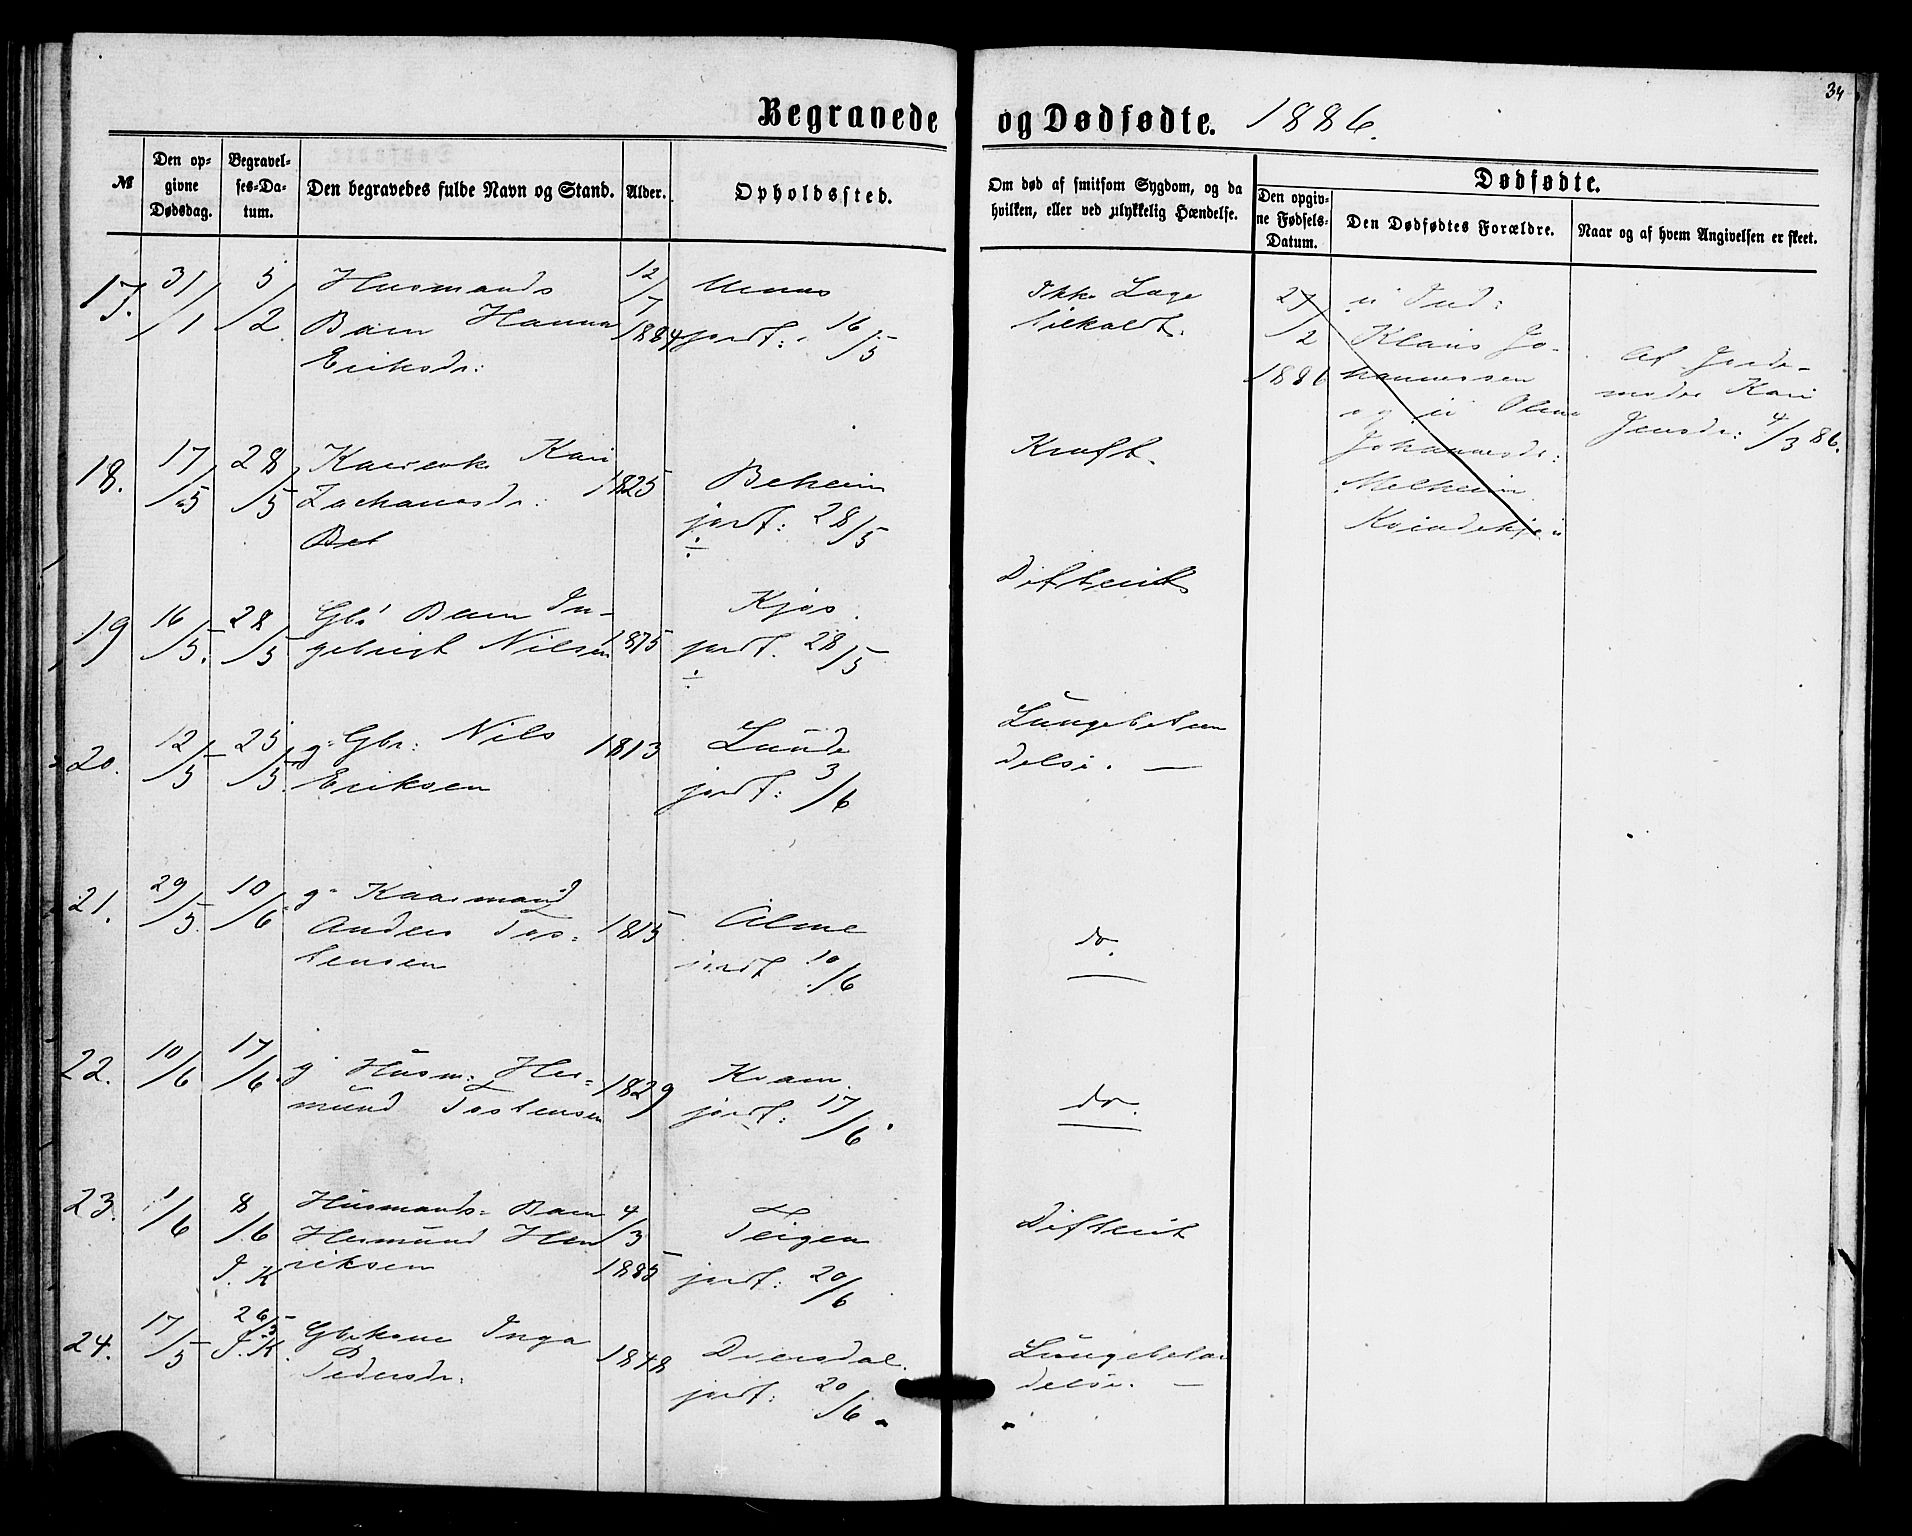 34
Begravede og Dødfødte. 1886.
№
Den opgivne Dødsdag.
Begravelses-Datum.
Den begravedes fulde Navn og Stand.
Alder.
Opholdssted.
Om død af smitsom Sygdom, og da hvilken, eller ved ulykkelig Hændelse.
Dødfødte.
Den opgivne Fødsels-Datum.
Den Dødfødtes Forældre.
Naar og af hvem Angivelsen er skeet.
17. 31/1 5/2 Husmands 12/7 Ikke Læge
Barn Hanna 1884 jordf: 16/5 tilkaldt.
Eriksdr:
27/2 1886
Klaus Jo-
hannessen
og Oline
Johannesdr:
Melheim.
Kvindekj:
Af Jorde-
moder Kari
Jensdr: 4/3 86.
18. 17/5 28/5 Kari 1825 Beheim Kræft.
Zachariasdr.
jordf: 28/5
19 16/5. 28/5 Gbs Barn In- 1875 Kjøs Difterit
gebrigt Nilsen jordf. 28/5
20. 12/5 25/5. g Gbr: Nils 1813 Lunde Lungebetæn
Eriksen jordf: 3/6 delse. —
21. 29/5. 10/6 g Kaarmand 1815 Alme do.
Anders Tos-
tensen jordf 10/6
22. 10/6 17/6. g Husm: Her- 1829 Kvam. do.
mund Tostensen jordf: 17/6.
23. 1/6 8/6 Husmands-Barn 4/3 Teigen Difterit
Hermund Hen
J. K riksen 1885 jordf: 20/6
24. 17/5 26/5 Gbrkone Inga 1848 Lungebetæn
J. K. Pedersdr: jordf: 20/6 delse. —